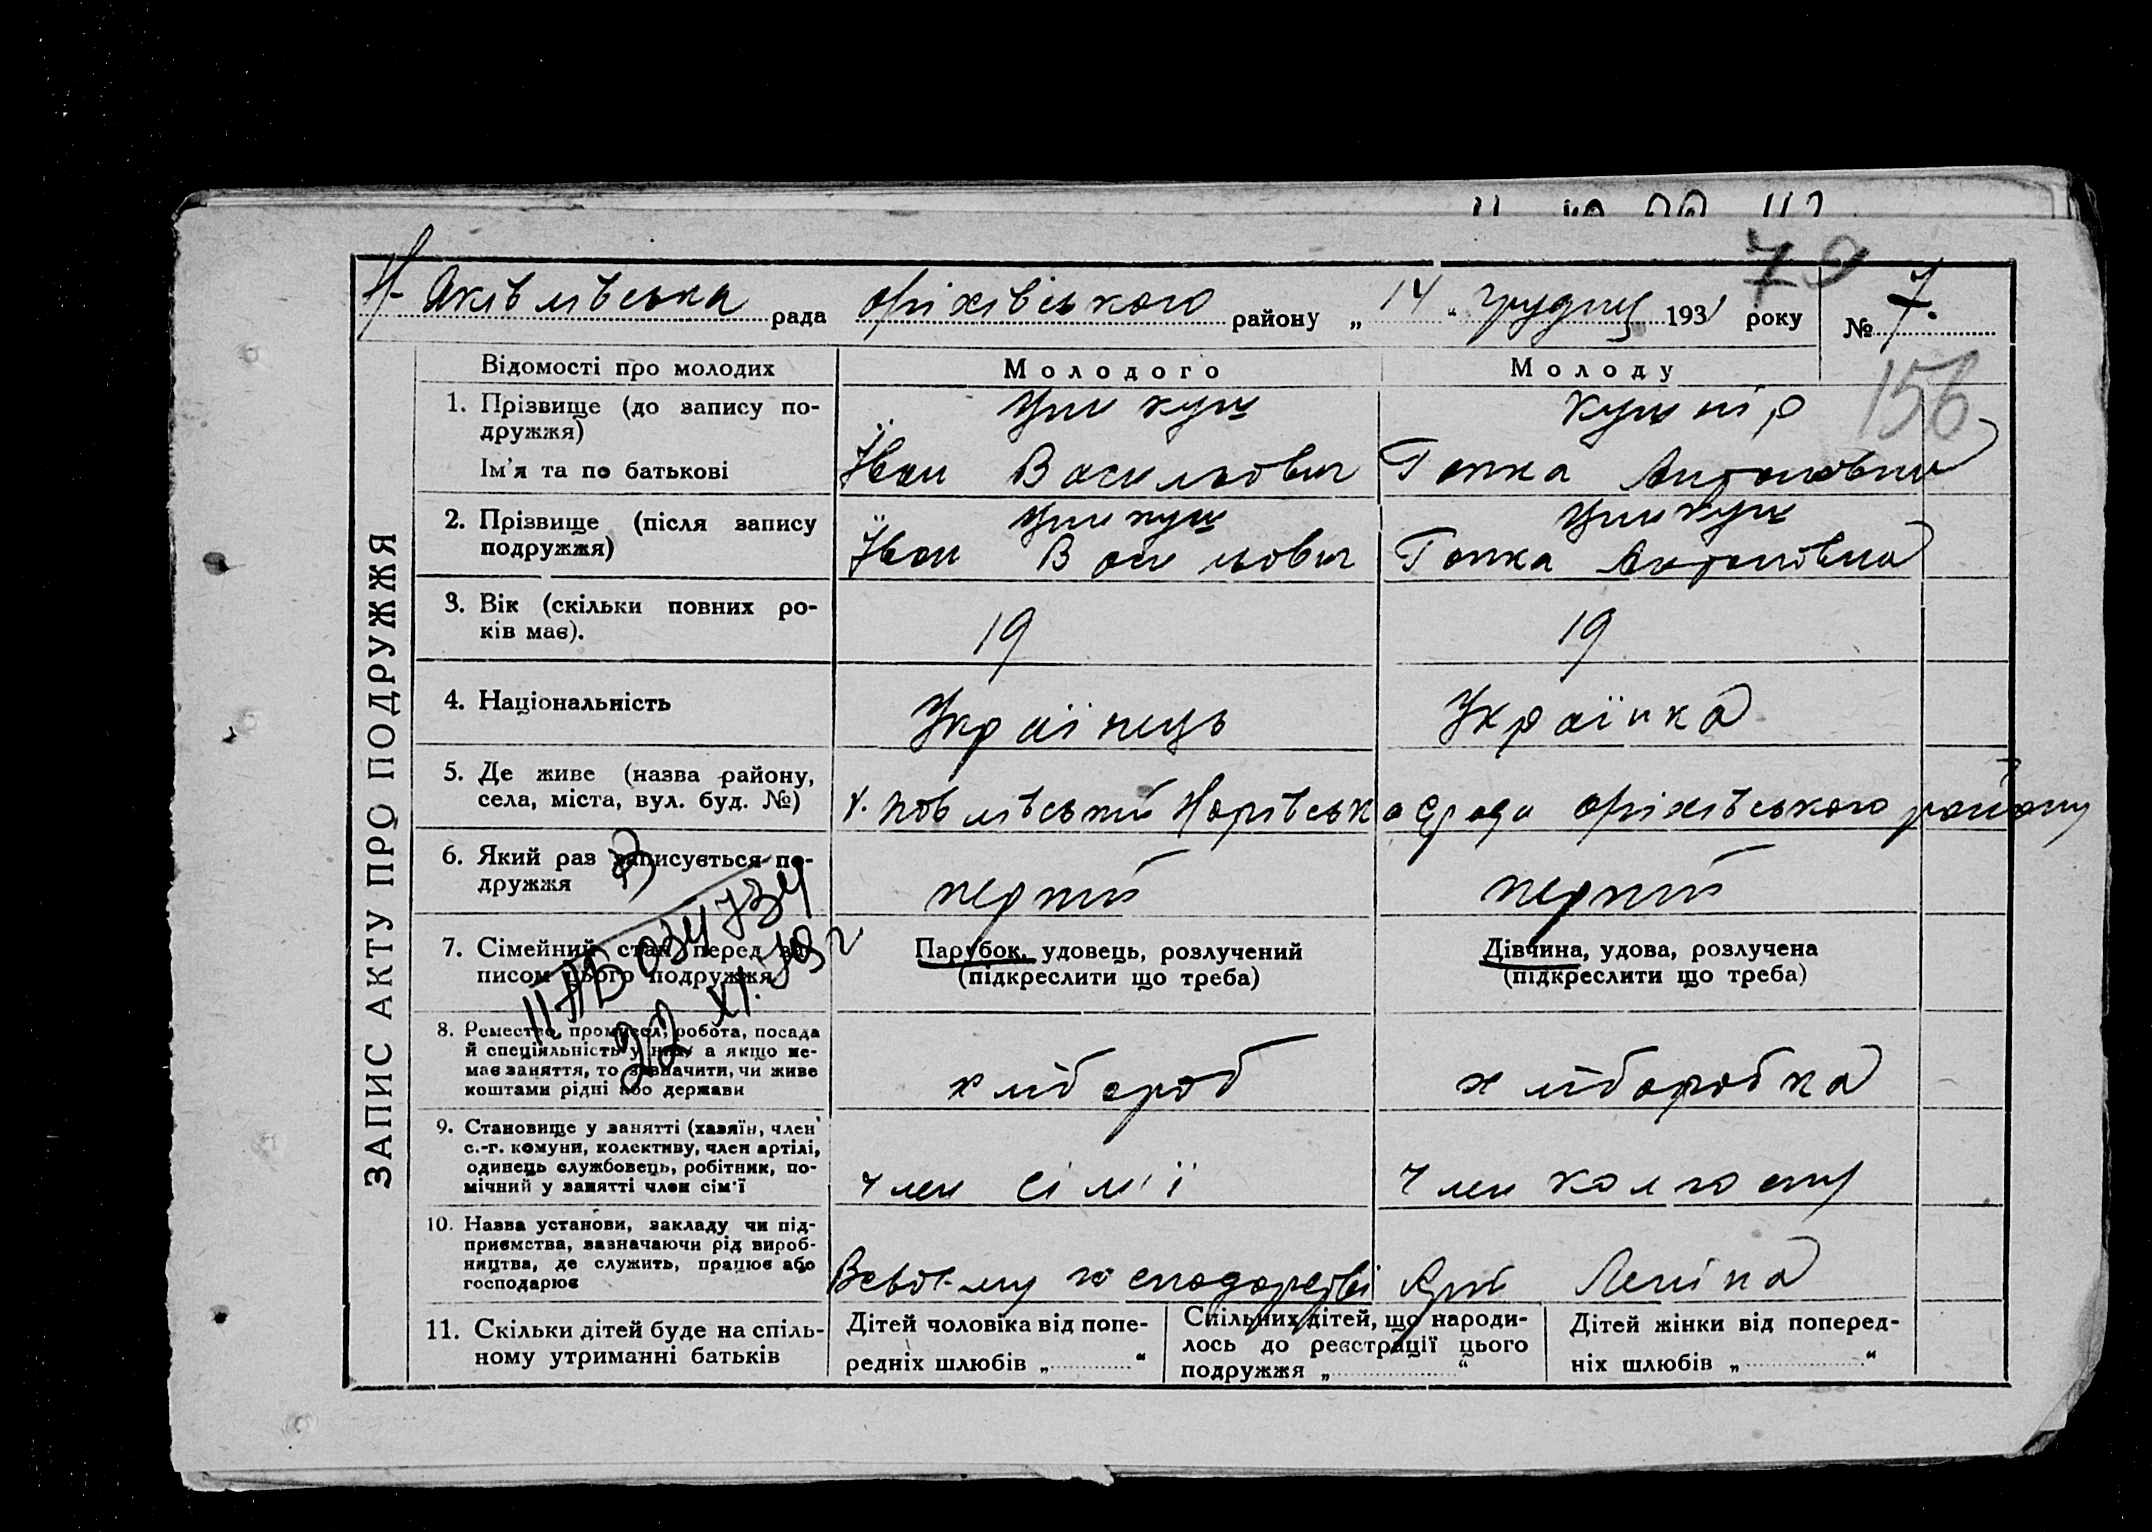 70
Н-Яківлівська рада оріхівського району „ 14 “ грудня 1931 року № 7.
156
ЗАПИС АКТУ ПРО ПОДРУЖЖЯ
Відомості про молодих Молодого Молоду
1. Прізвище (до запису по-
дружжя) Кушнір
Ім'я та по батькові Іван Васильович Гапка Антоновна
2. Прізвище (після запису
подружжя)
Іван Васильович Гапка Антоновна
3. Вік (скільки повних ро-
ків має). 19 19
4. Національність Українець Українка
5. Де живе (назва району,
села, міста, вул. буд. №) рада оріхівського району
6. Який раз записується по-
дружжя перший перший
7. Сімейний стан перед за-
писом цього подружжя
Парубок, удовець, розлучений
(підкреслити що треба)
Дівчина, удова, розлучена
(підкреслити що треба)
II АБ 034734
22 XI.
8. Ремество, промисел, робота, посада
й спеціяльність у ньму а якщо не-
має заняття, то зазначити, чи живе
коштами рідні або держави
хлібороб хліборобка
9. Становище у занятті (хазяїн, член
с.-г. комуни, колективу, член артілі,
одинець службовець, робітник, по-
мічний у занятті член сім'ї
член сім'ї Член колгоспу
10. Назва установи, закладу чи під-
приємства, зазначаючи рід вироб-
ництва, де служить, працює або
господарює
В своєму господарстві Арт Леніна
11. Скільки дітей буде на спіль-
ному утриманні батьків
Дітей чоловіка від попе-
редніх шлюбів „ “
Спільних дітей, що народи-
лось до реєстрації цього
подружжя „ “
Дітей жінки від поперед-
ніх шлюбів „ “